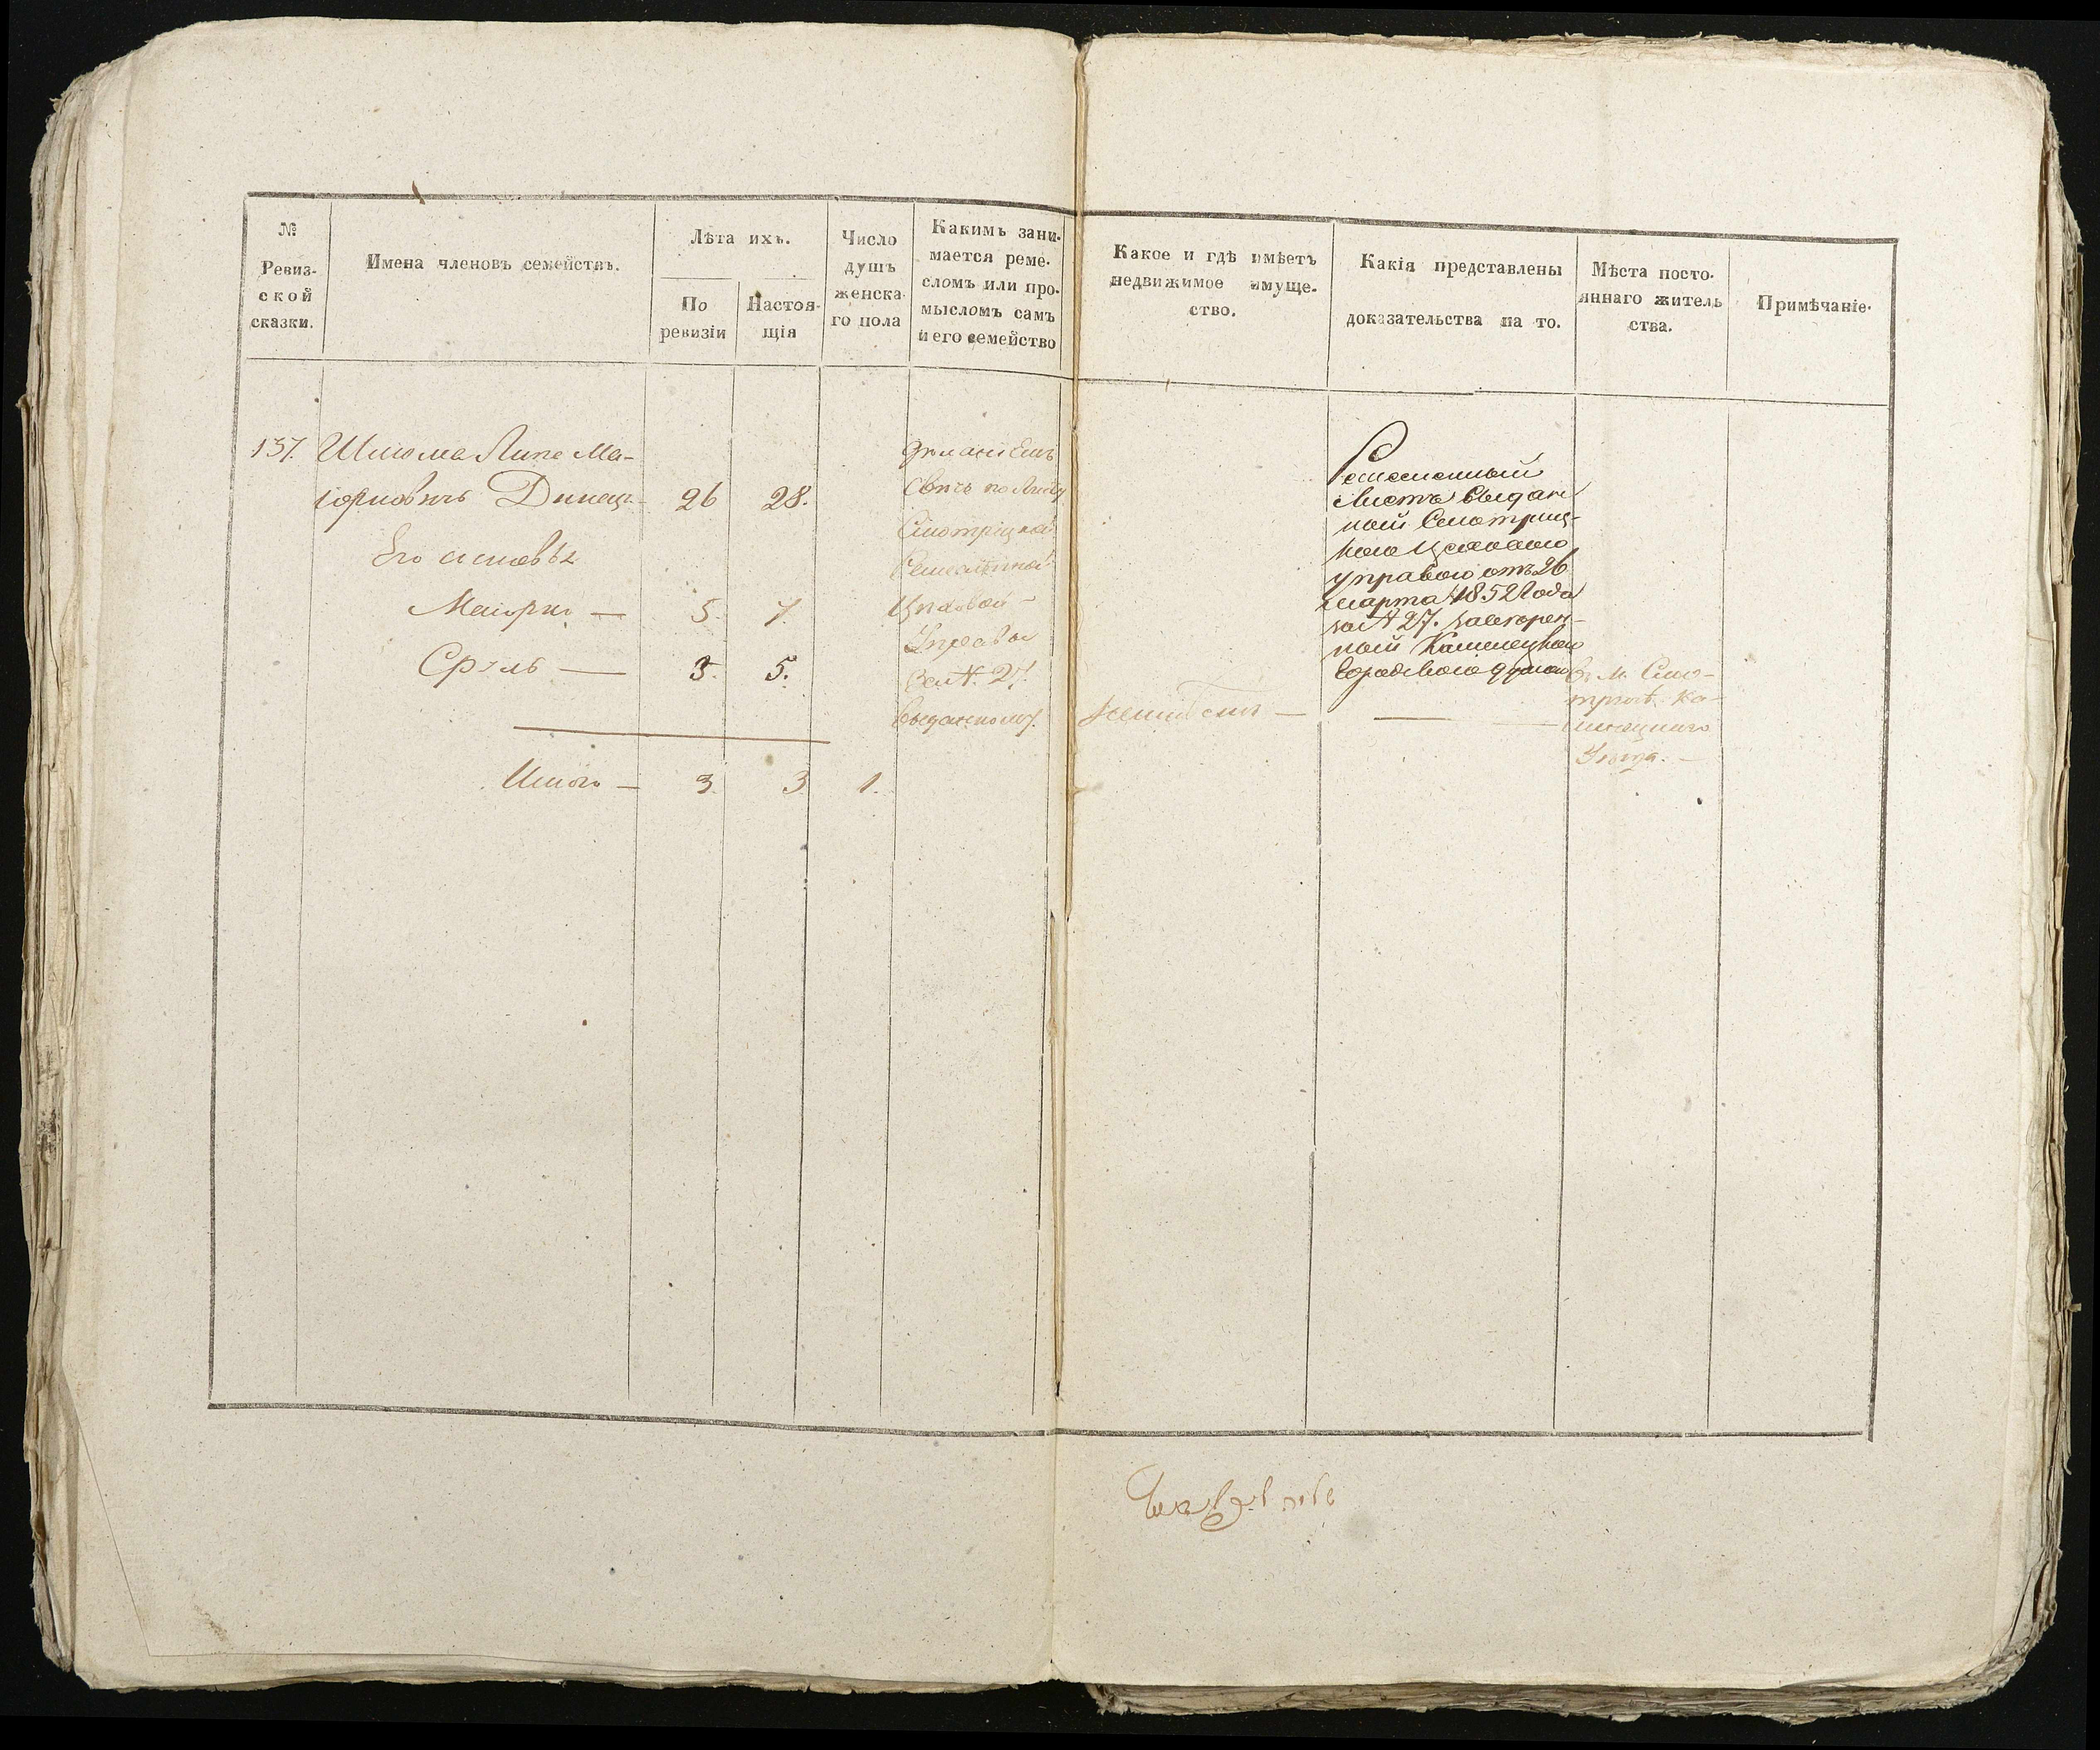 №
Ревиз-
ской
сказки.
Имена членовъ семействъ.
Лѣта ихъ.
По
ревизіи
Настоя-
щія
Число
душъ
женска-
го пола
Какимъ зани-
мается реме-
сломъ или про-
мысломъ самъ
и его семейство
Какое и гдѣ имѣетъ
недвижимое имуще-
ство.
Какія представлены
доказательства на то.
Мѣста посто-
яннаго житель
ства.
Примѣчаніе.
137. Шлiома Липе Ма-
26 28.
Его сыновья
5. 7.
Сруль — 3. 5.
Итого — 3. 3 1.
Смотрицкой
Ремесленной
Цеховой
Управы
за № 27.
выданному.
неимѣетъ —
Ремесленный
Листъ выдан
ный Смотриц-
кою Цеховою
управою отъ 26
марта 1852 года
за № 27. засвереп-
ный Каменецкою
Городскою думою
въ м. Смо-
тричѣ Ка-
менецкаго
Уѣзда. —